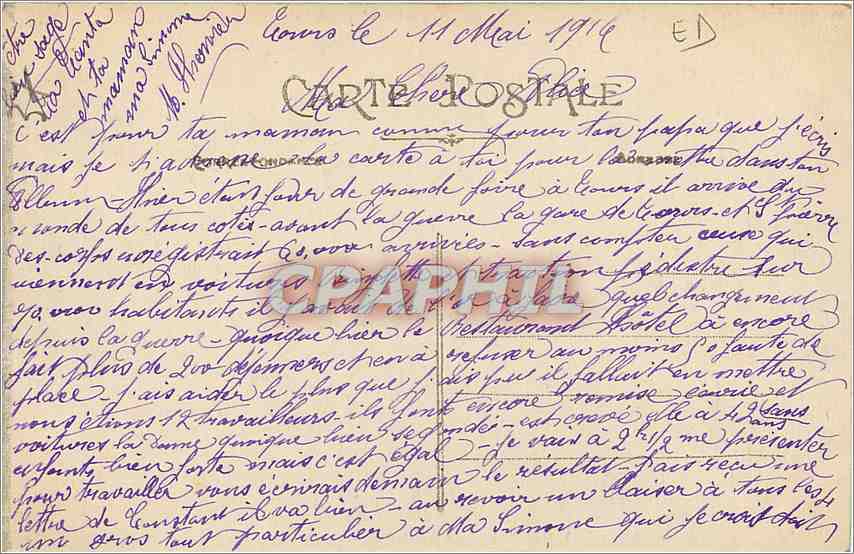 Tours le 11 Mai 1916
ED
CARTE POSTALE
Ma Chère
c'est pour ta maman comme pour ton papa que j'écris
mais je t'adresse la carte à toi pour la mettre dans ton
CORRESPONDANCE
ADRESSE
album - Hier étant jour de grande foire à Tours il arrive du
monde de tous cotés - avant la guerre la gare de Tours - et St Pierre
des - corps enregistrait 60,000 arrivées - sans compter ceux qui
viennent en voitures traction pédestre sur
70,000 habitants il y quel changement
depuis la guerre - quoique hier le Restaurant hôtel à encore
fait plus de 200 déjeuners et on à refuser au moins 50 faute de
place - j'ais aider le plus que j'ais pu il fallut en mettre
encore remise écurie et
nous étions 12 travailleurs - ils font
voitures la Dame quoique bien secondée - est crevé elle a 42 ans sans
enfants bien forte mais c'est égal - je vais à 2h 1/2 me présenter
pour travailler vous écrirais demain le résultat - j'ais reçu une
lettre de Constant il va bien - au revoir un baiser à tous les 4
un gros tout particulier à Ma Simone qui je crois doit
être
bien sage
ta tante
et ta
maman
ma Simone
CPAPHIL